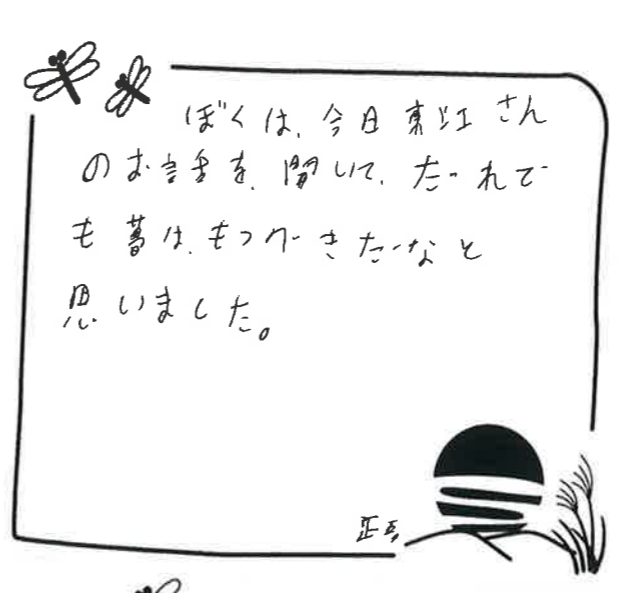 ぼくは、今日東江さん
のお話を、聞いて、だれで
も夢は、もつべきだなと
思いました。